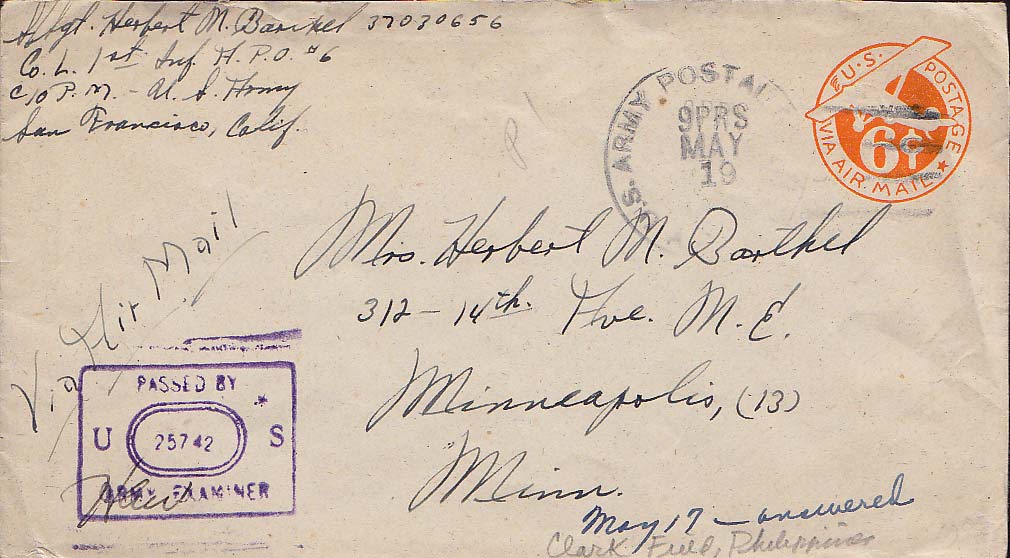 S/Sgt. Herbert M. Barthel 37030656
Co. L. 1st Inf. A. P.O. #6
c/o P. M. - U. S. Army
San Francisco, Calif.
U.S. ARMY POSTAL
9PRS
MAY
19
U.S. POSTAGE
6¢
VIA AIR MAIL
Via Air Mail
Mrs. Herbert M. Barthel
312 - 14th. Ave. N. E.
Minneapolis, (13)
Minn.
PASSED BY
U 25742 S
ARMY EXAMINER
May 17 - answered
Clark Field, Philippines